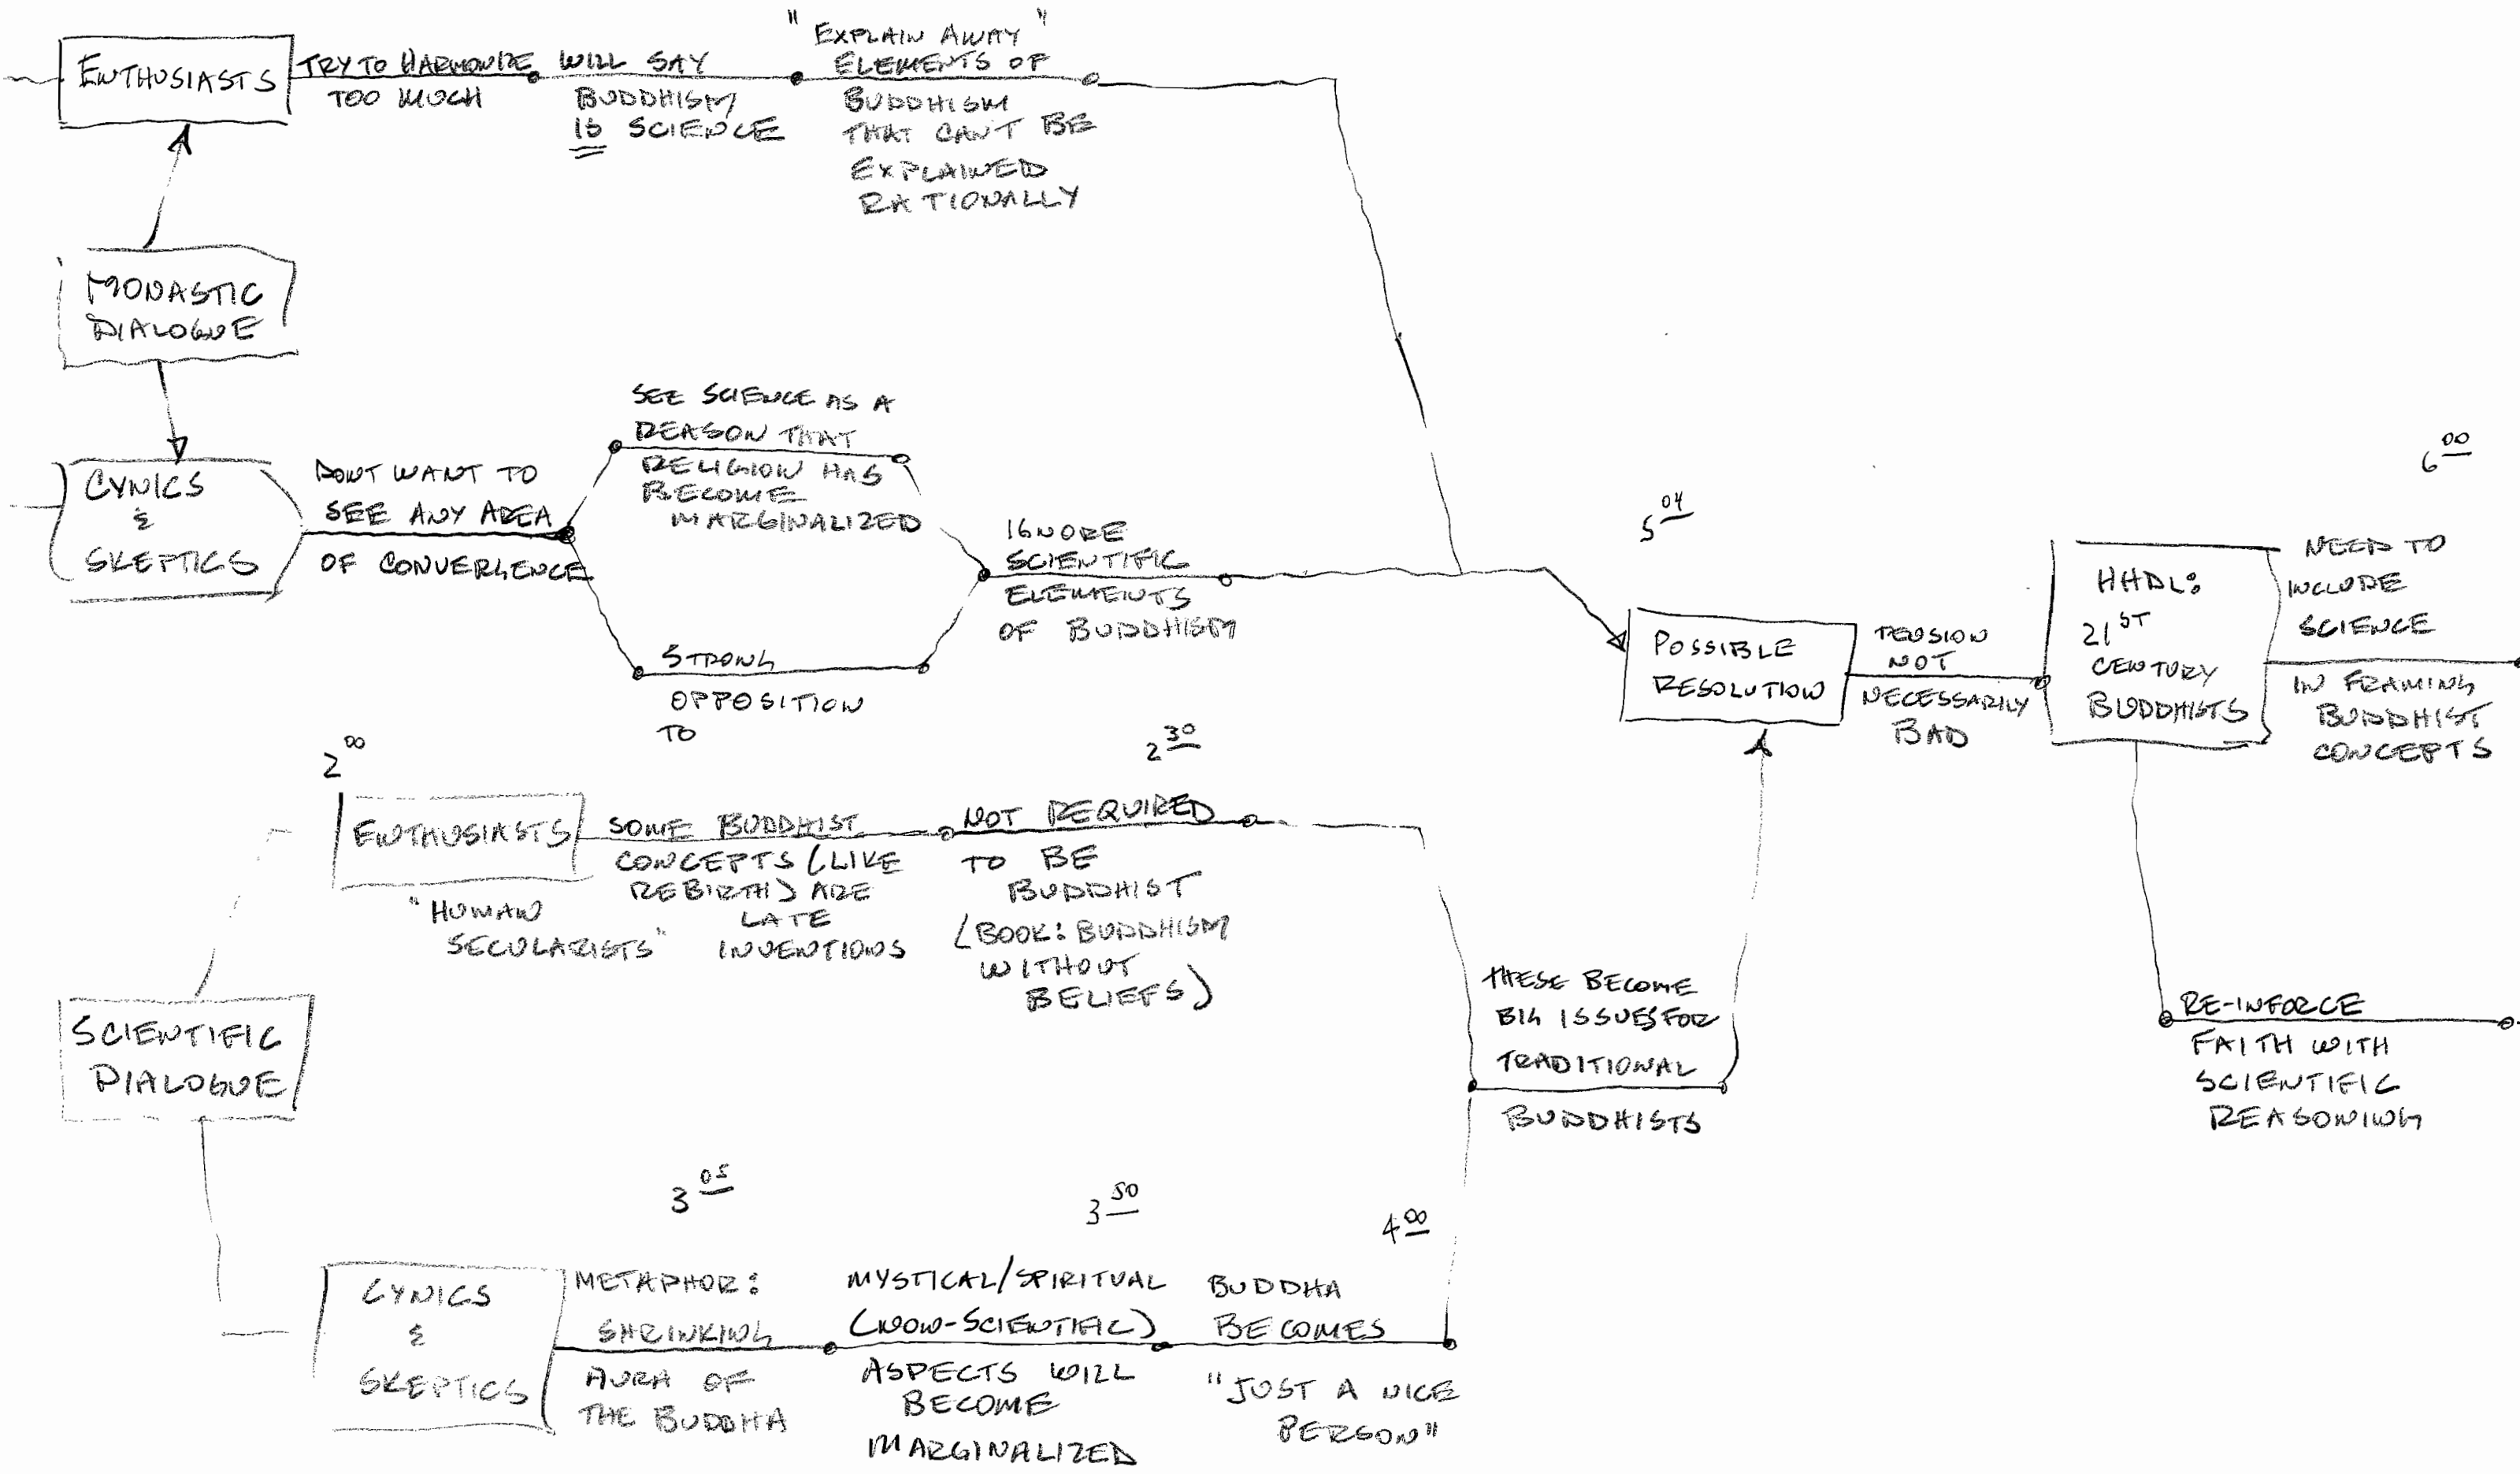 ENTHUSIASTS
TRY TO HARMONIZE
TOO MUCH
WILL SAY
BUDDHISM
IS SCIENCE
"EXPLAIN AWAY"
ELEMENTS OF
BUDDHISM
THAT CAN'T BE
EXPLAINED
RATIONALLY
MONASTIC
DIALOGUE
CYNICS
&
SKEPTICS
DONT WANT TO
SEE ANY AREA
OF CONVERGENCE
SEE SCIENCE AS A
REASON THAT
RELIGION HAS
BECOME
MARGINALIZED
STRONG
OPPOSITION
TO
IGNORE
SCIENTIFIC
ELEMENTS
OF BUDDHISM
5 04
POSSIBLE
RESOLUTION
TENSION
NOT
NECESSARILY
BAD
HHDL:
21ST
CENTURY
BUDDHISTS
6 00
NEED TO
INCLUDE
SCIENCE
IN FRAMING
BUDDHIST
CONCEPTS
RE-INFORCE
FAITH WITH
SCIENTIFIC
REASONING
SCIENTIFIC
DIALOGUE
2 00
ENTHUSIASTS
"HUMAN
SECULARISTS"
SOME BUDDHIST
CONCEPTS (LIKE
REBIRTH) ARE
LATE
INVENTIONS
2 30
NOT REQUIRED
TO BE
BUDDHIST
(BOOK: BUDDHISM
WITHOUT
BELIEFS)
THESE BECOME
BIG ISSUES FOR
TRADITIONAL
BUDDHISTS
CYNICS
&
SKEPTICS
3 05
METAPHOR:
SHRINKING
AURA OF
THE BUDDHA
3 50
MYSTICAL/SPIRITUAL
(NON-SCIENTIFIC)
ASPECTS WILL
BECOME
MARGINALIZED
4 00
BUDDHA
BECOMES
"JUST A NICE
PERSON"